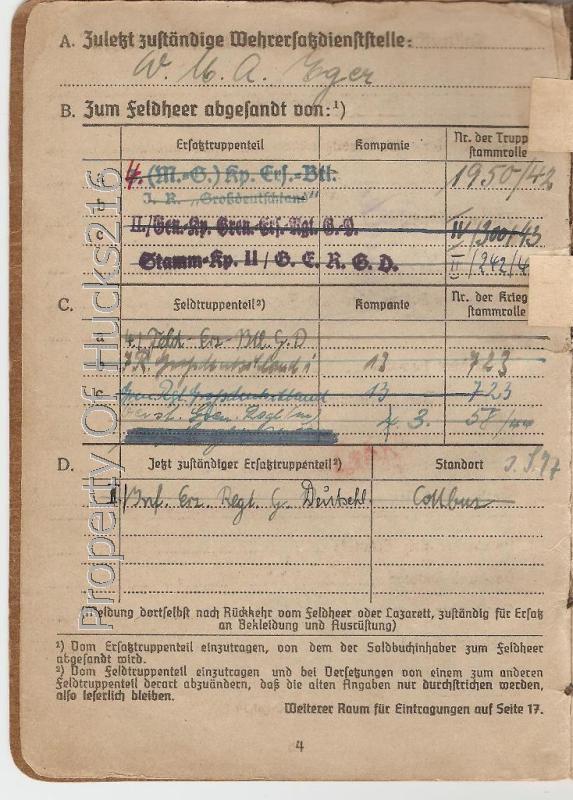 A. Zuletzt zuständige Wehrersatzdienststelle:
W. M. A. Eger
B. Zum Feldheer abgesandt von:¹)
Ersatztruppenteil Kompanie Nr. der Trupp stammrolle
4. (M.-G.) Kp. Ers.-Btl. 1950/42
I. R. „Großdeutschland"
II./Gen.-Kp. Gren.-Ers.-Rgt. G. D. IV/300/43
Stamm-Kp. II / G. E. R. G. D. II/242/4
C. Feldtruppenteil²) Kompanie Nr. der Krieg stammrolle
a 4./Feld-Ers-Btl. G. D
J.R. Großdeutschland 13 723
c Gren Rgt. Grossdeutschland 13 723
3. 58/44
D. Jetzt zuständiger Ersatztruppenteil²) Standort
Inf. Ers. Regt. G. Deutschl. Cottbus
Meldung dortselbst nach Rückkehr vom Feldheer oder Lazarett, zuständig für Ersatz
an Bekleidung und Ausrüstung)
¹) Vom Ersatztruppenteil einzutragen, von dem der Soldbuchinhaber zum Feldheer
abgesandt wird.
²) Vom Feldtruppenteil einzutragen und bei Versetzungen von einem zum anderen
Feldtruppenteil derart abzuändern, daß die alten Angaben nur durchstrichen werden,
also leserlich bleiben.
Weiterer Raum für Eintragungen auf Seite 17.
4
Property Of Hucks216